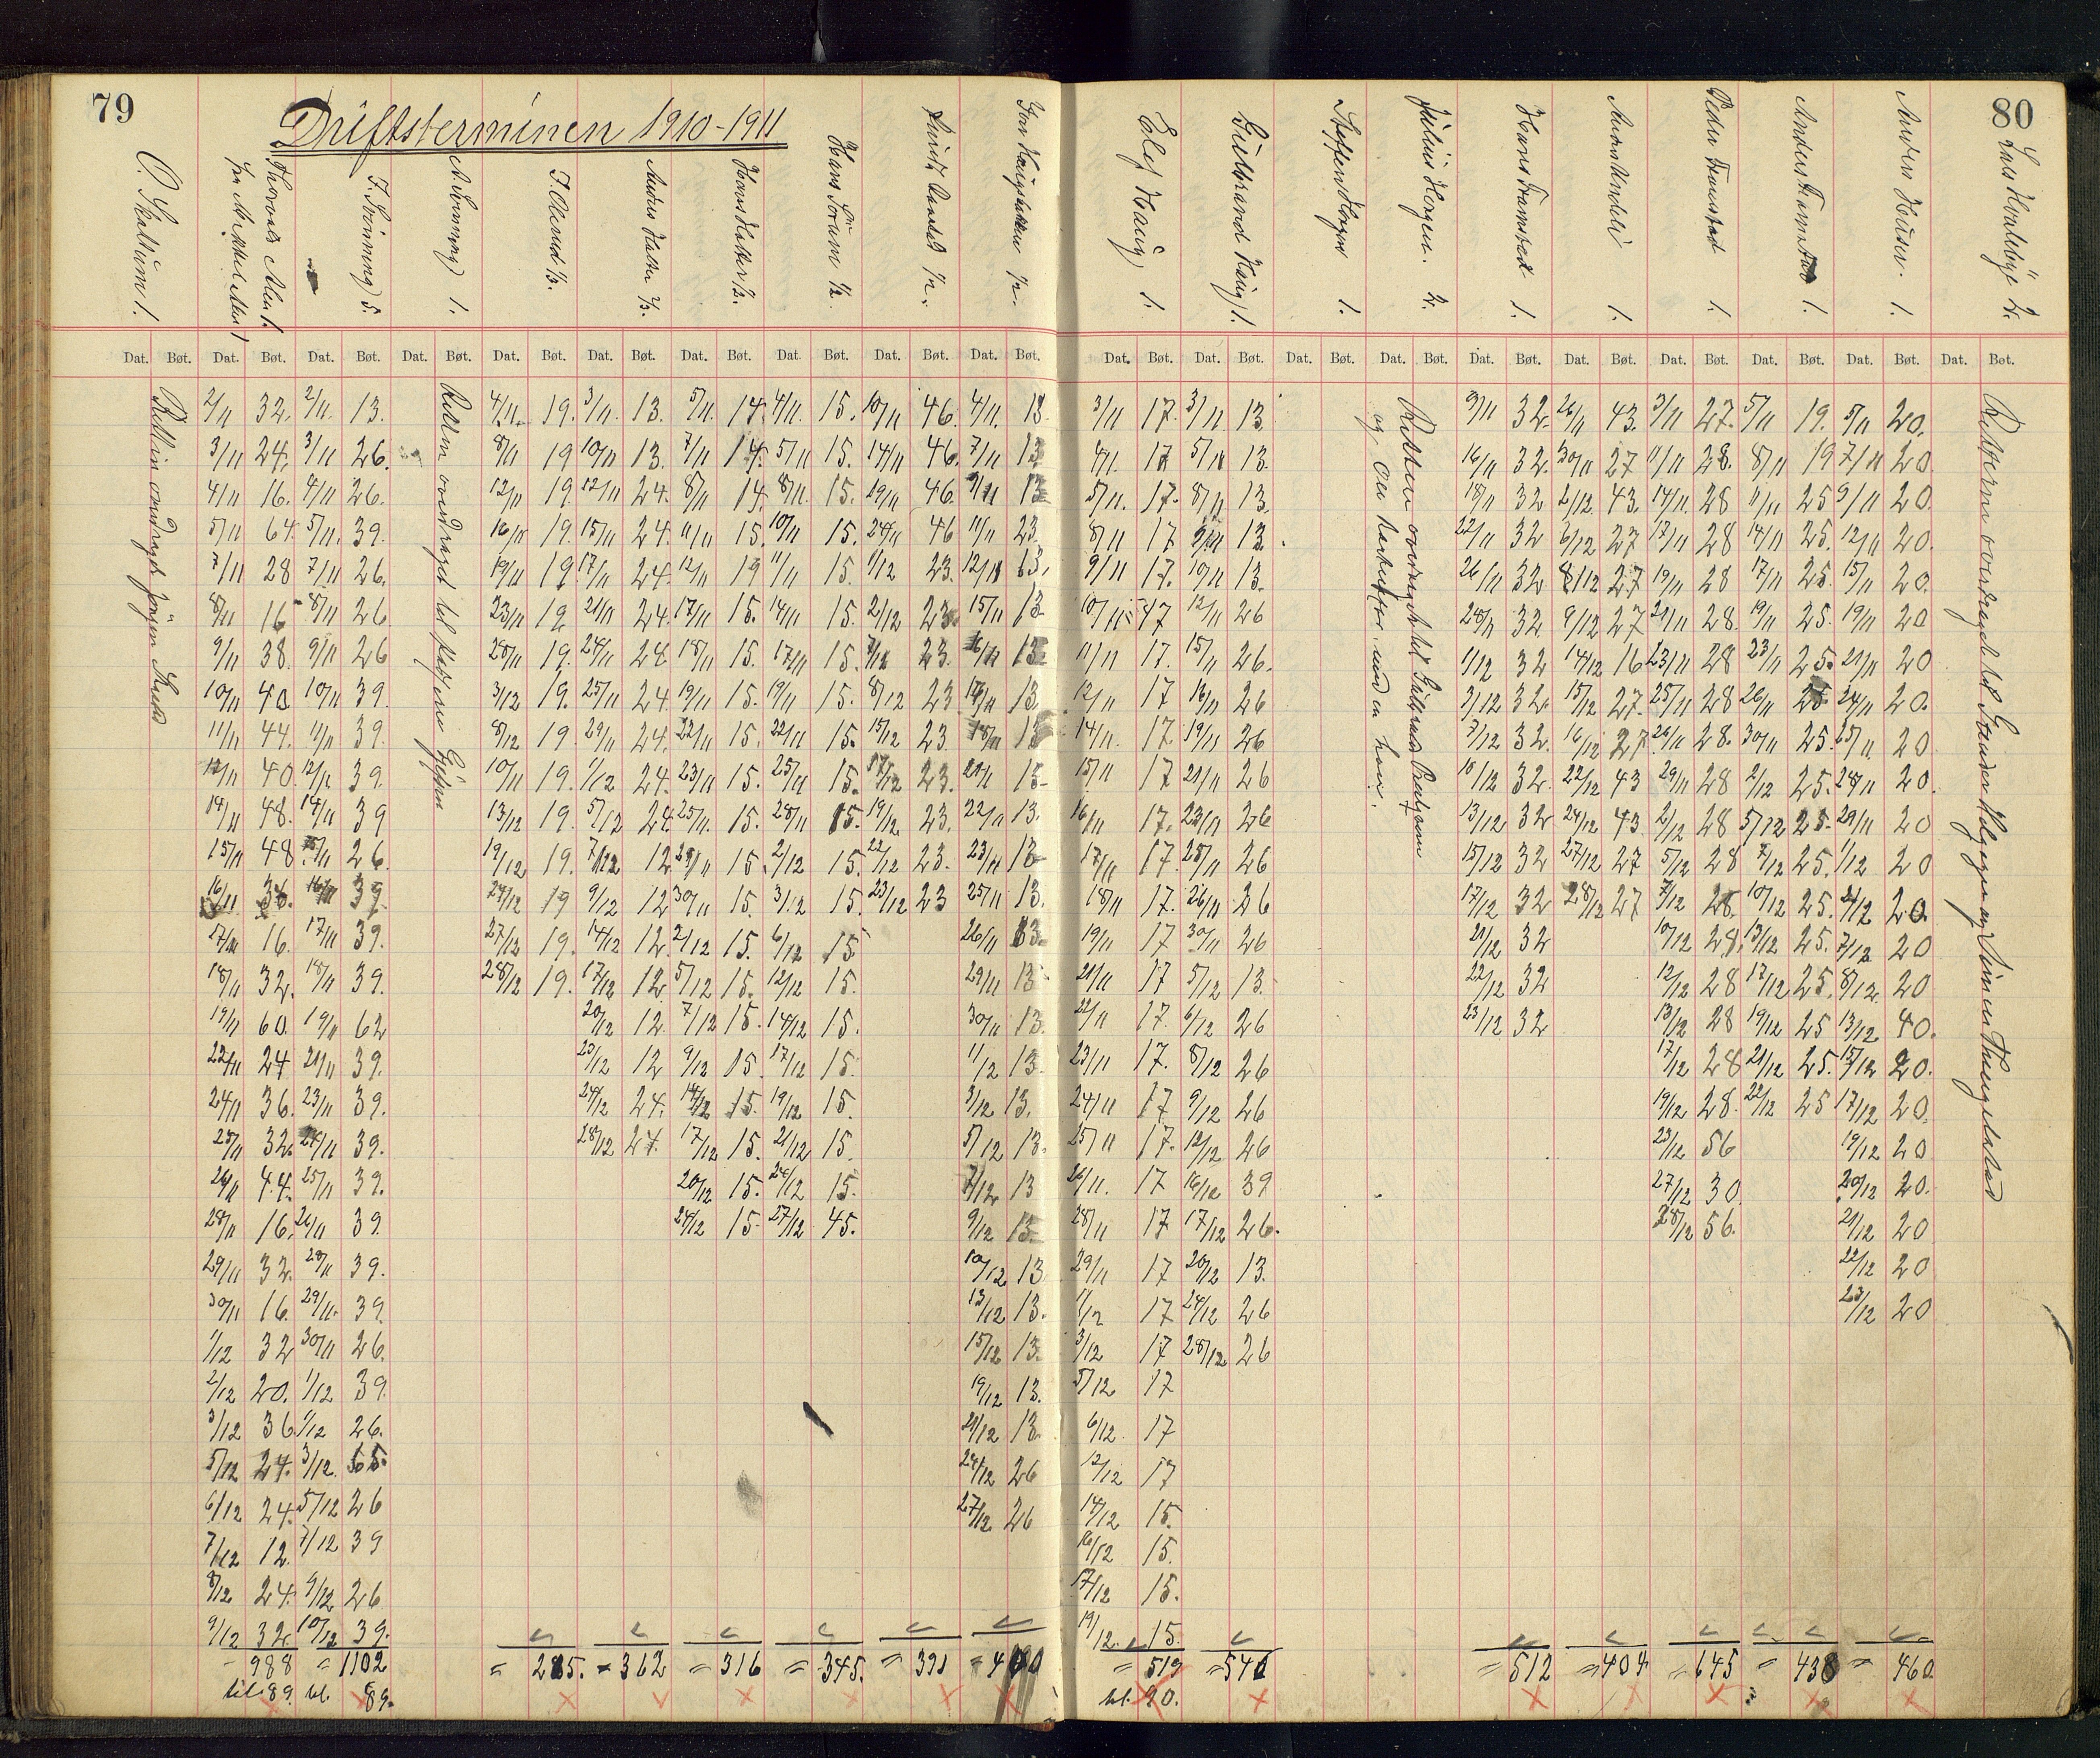 79
Driftsterminen 1910-1911
80
O. Skatium 1.
Thorvald Alm 1.
J. Svinning 5.
A. Svinning 1.
J. Olerud ⅓.
Anders Hatten ⅔.
Hans Hatten ½.
Hans Sørum ½.
1/2.
1/2.
Elef Haug 1.
Gulbrand Haug 1.
Steffen Horgen 1.
Julius Horgen. 2.
Hans Tramstad 1.
1.
Peder Tramstad 1.
Anders Tramstad 1.
Anders Huser. 1.
Lars Hvalebye 2.
Dat. Bøt. Dat. Bøt. Dat. Bøt. Dat. Bøt. Dat. Bøt. Dat. Bøt. Dat. Bøt. Dat. Bøt. Dat. Bøt. Dat. Bøt.
Dat. Bøt. Dat. Bøt. Dat. Bøt. Dat. Bøt. Dat. Bøt. Dat. Bøt. Dat. Bøt. Dat. Bøt. Dat. Bøt. Dat. Bøt.
2/11 32. 2/11. 13. 4/11. 19. 3/11. 13. 5/11. 14. 4/11. 15. 10/11 46. 4/11. 13.
3/11 24. 3/11 26. 8/11 19 10/11 13. 7/11 14. 5/11 15. 14/11 46. 7/11 13
4/11 16. 4/11 26. 12/11 19. 12/11 24. 8/11 14. 8/11. 15. 19/11 46. 13
5/11 64. 5/11. 39. 16/11 19. 15/11 24. 11/11 15. 10/11 15. 24/11 46 11/11 23.
7/11 28 7/11 26. 19/11 19. 17/11 24. 12/11 19 11/11 15. 1/12 23.
8/11 16 8/11 26 23/11 19. 21/11 24. 17/11 15. 14/11 15. 2/12 23. 15/11 13
9/11 38. 9/11 26 28/11 19. 24/11 24 18/11 15. 17/11 15. 23. 13
10/11 40 10/11 39. 3/12 19. 25/11 24. 19/11 15. 19/11 15. 8/12 23 13.
11/11 44. 11/11 39. 8/12 19. 29/11 24. 22/11 15. 22/11 15. 15/12 23. 18/11 13
12/11 40. 12/11 39. 10/11 19. 1/12 24. 23/11 15. 25/11 15. 17/12 23. 21/11 13
14/11 48. 14/11 39 13/12 19. 5/12 24. 25/11. 15. 28/11 15. 19/12 23. 22/11 13.
15/11 48. 15/11 26. 19/12 19. 7/12 12. 29/11 15. 2/12 15. 22/12 23. 23/11 13
16/11 16/11 39. 24/12 19 9/12 12 30/11 15. 3/12 15. 23/12 23 25/11 13.
17/11 16. 17/11 39. 27/12 19. 14/12 12. 2/12 15. 6/12 15 26/11 13.
18/11 32. 18/11 39. 28/12 19. 17/12 12. 5/12 15. 12/12 15. 29/11 13
19/11 60. 19/11 62 20/12 12. 7/12 15. 14/12 15. 30/11 13.
22/11 24 21/11 39. 23/12 12 9/12 15. 17/12 15. 1/12 13.
24/11 36. 23/11 39. 24/12 24. 14/12 15. 19/12 15. 3/12 13.
25/11 32. 24/11 39. 28/12 24. 17/12 15. 21/12 15. 5/12 13.
26/11 44. 25/11 39. 20/12 15. 24/12 15. 7/12 13
28/11 16. 26/11 39. 24/12 15. 27/12 45. 9/12 13
29/11 32. 28/11 39. 10/12 13
30/11 16. 29/11. 39. 13/12 13.
1/12 32 30/11 26. 15/12 13.
2/12 20. 1/12 39. 19/12 13.
3/12 36. 1/12 26. 21/12 13.
5/12 24. 3/12. 65. 24/12 26
6/12 24. 5/12 26 27/12 26
7/12 12. 7/12 39
8/12 24. 9/12 26
9/12 32. 10/12 39.
988 = 1102 = 285. = 362 = 316 = 345. = 391
til 89. til. 89.
3/11 17. 3/11 13. 9/11 32. 26/11 43. 3/11 27. 5/11 19. 5/11 20.
4/11. 17 5/11 13. 16/11 32. 30/11 27 11/11 28. 8/11 19 7/11 20
5/11. 17. 8/11 13. 18/11 32 2/12 43. 14/11 28 11/11 25 9/11 20
8/11 17 9/11 13. 22/11 32 6/12 27 17/11 28 14/11 25. 12/11 20.
9/11 17. 10/11 13. 26/11 32 8/12 27 19/11 28 17/11 25. 15/11 20.
10/11 17 12/11 26 28/11 32 9/12 27 21/11 28. 19/11 25. 19/11 20
11/11 17. 15/11 26. 1/12 32 14/12 16 23/11 28 23/11 25. 21/11 20
12/11 17 16/11 26 3/12 32. 15/12 27. 25/11 28 26/11 25 24/11 20.
14/11. 17. 19/11 26 7/12 32. 16/12 27 26/11 28. 30/11 25. 25/11 20
15/11 17 21/11 26 10/12 32. 22/12 43 29/11 28 2/12 25. 28/11 20.
16/11 17. 23/11 26 13/12 32 24/12 43 2/12 28 5/12 25. 29/11 20
17/11 17. 25/11 26 15/12 32 27/12 27 5/12 28 7/12 25. 1/12 20
18/11 17. 26/11 26 17/12 32 28/12 27 7/12 28. 10/12 25. 2/12 20.
19/11 17 30/11 26 21/12 32 10/12 28. 13/12 25. 7/12 20
21/11 17 5/12 13. 22/12 32 12/12 28 17/12 25. 8/12 20
22/11 17. 6/12 26 23/12 32 13/12 28 19/12 25 13/12 40.
23/11 17. 8/12 26 17/12 28 21/12 25. 15/12 20.
24/11 17 9/12 26 19/12 28. 22/12 25 17/12 20.
25/11 17. 12/12 26 23/12 56 19/12 20
26/11. 17 16/12 39 27/12 30. 20/12 20.
28/11 17 17/12 26. 28/12 56. 21/12 20
29/11 17 20/12 13. 22/12 20
1/12 17 24/12 26 23/12 20
3/12 17 28/12 26
5/12 17
6/12 17
12/12 17
14/12 15.
16/12 15.
17/12 15.
19/12. 15.
= 519 = 546 = 512 = 404 = 645 = 438 = 460
til. 90.
Retten overdraget Jørgen
Retten overdraget til
Retten overdraget til Gulbrand
og
Retten overdraget til Horgen og Simen Thingelstad